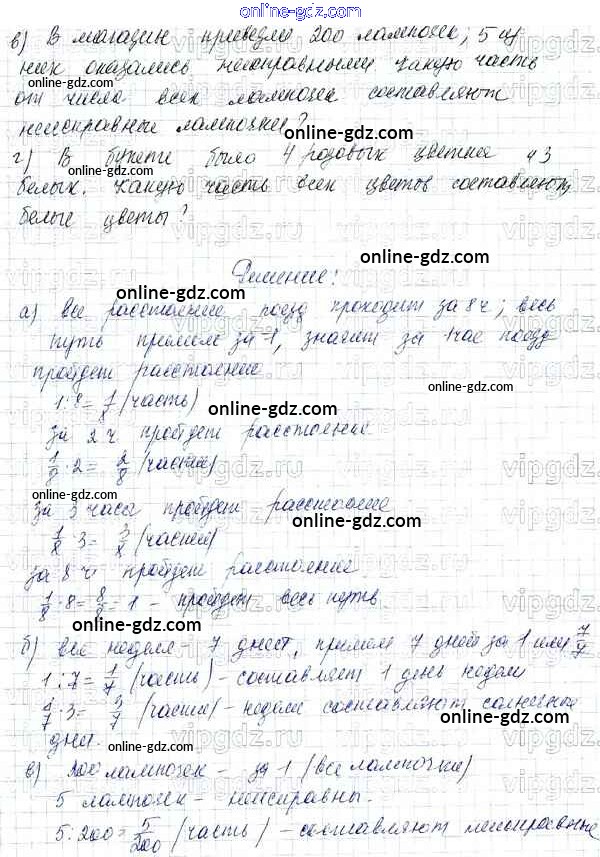 online-gdz.com
в) В магазин привезли 200 лампочек, 5 из
них оказались неисправными. Какую часть
от числа всех лампочек составляют
неисправные лампочки?
online-gdz.com
г) В букете было 4 розовых цветка и 3
белых. Какую часть всех цветов составляют
белые цветы?
online-gdz.com
Решение:
online-gdz.com
а) все расстояние поезд проходит за 8 ч; весь
путь примем за 1, значит за 1 час поезд
пройдет расстояние
online-gdz.com
1:8= 1/8 (часть)
online-gdz.com
за 2 ч пройдет расстояние
1/8 · 2 = 2/8 (частей)
online-gdz.com
за 3 часа пройдет расстояние
online-gdz.com
1/8 · 3 = 3/8 (частей)
за 8 ч пройдет расстояние
online-gdz.com
1/8 · 8 = 8/8 = 1 - пройдет весь путь.
online-gdz.com
б) вся неделя - 7 дней, примем 7 дней за 1 или 7/7
1:7= 1/7 (часть) - составляет 1 день недели
1/7 · 3 = 3/7 (части) - недели составляют солнечные
online-gdz.com
дней.
online-gdz.com
в) 200 лампочек - за 1 (все лампочки)
online-gdz.com
5 лампочек - неисправны.
5:200= 5/200 (часть) - составляют неисправные
online-gdz.com
vipgdz.ru